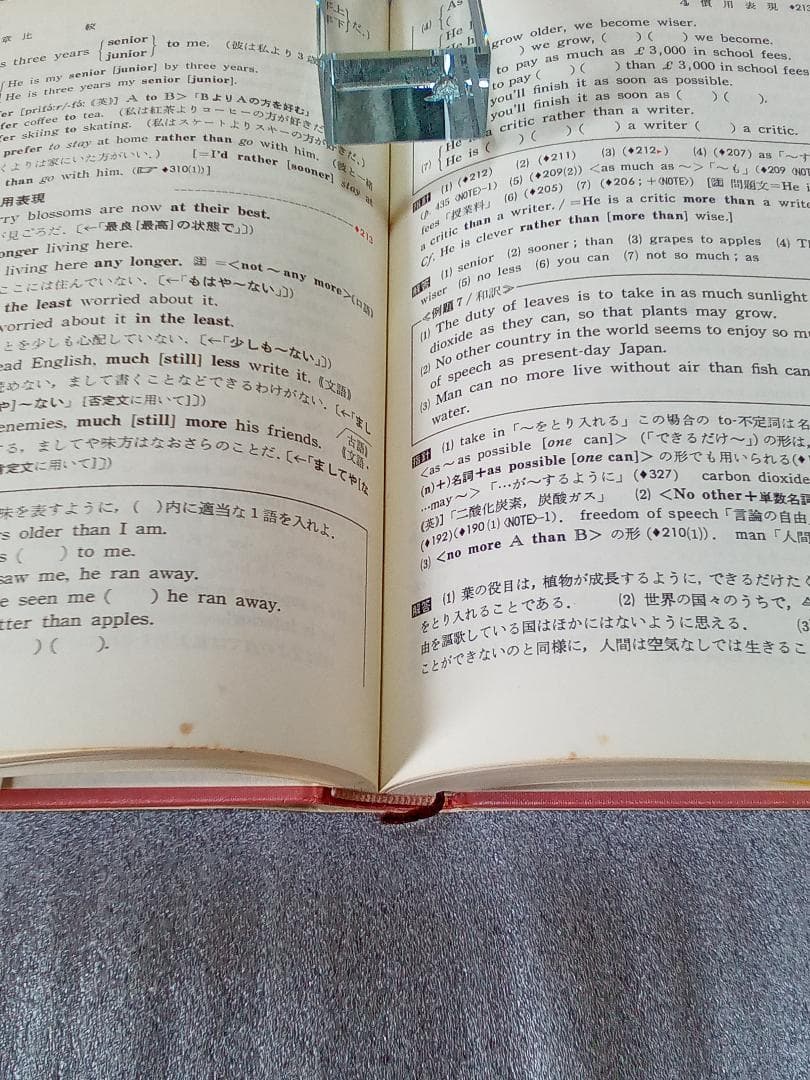 章 比 較
s three years {senior / junior} to me. (彼は私より3歳
He is my senior [junior] by three years.
He is three years my senior [junior].
fer [prifə́ːr/-fə́ː (英)] A to B> 「BよりAの方を好む」
fer coffee to tea. (私は紅茶よりコーヒーの方が好きだ.)
fer skiing to skating. (私はスケートよりスキーの方が好きだ.)
prefer to stay at home rather than go with him. (彼と一緒
くよりは家にいた方がいい.) [=I'd rather [sooner] stay at
than go with him. (☞ ♦310(1))]
用表現
rry blossoms are now at their best. ♦213
が見ごろだ. [←「最良[最高]の状態で」])
onger living here.
living here any longer. 注 =<not~any more>(口語)
ここには住んでいない. [←「もはや~ない」])
the least worried about it.
worried about it in the least.
とを少しも心配していない. [←「少しも~ない」])
ead English, much [still] less write it. 《文語》
読めない, まして書くことなどできるわけがない. [←「まし
や]~ない」[否定文に用いて]])
enemies, much [still] more his friends. 《文語・古語》
する, ましてや味方はなおさらのことだ. [←「ましてや[な
肯定文に用いて]])
味を表すように, ( )内に適当な1語を入れよ.
rs older than I am.
s ( ) to me.
saw me, he ran away.
e seen me ( ) he ran away.
tter than apples.
) ( ).
4 慣用表現 ♦213
(4) {As
(
grow older, we become wiser.
) we grow, ( ) ( ) we become.
to pay as much as £3,000 in school fees.
to pay ( ) ( ) than £3,000 in school fees
you'll finish it as soon as possible.
you'll finish it as soon as ( ) ( ).
is a critic rather than a writer.
(7) {He is ( ) ( ) ( ) a writer ( ) a critic.
指針 (1) (♦212) (2) (♦211) (3) (♦212▸) (4) (♦207) as「~す
(p. 435 <NOTE>-1) (5) (♦209(2)) <as much as ~>「~も」(♦209 <NOT
fees「授業料」 (6) (♦205) (7) (♦206; +<NOTE>) [注 問題文=He i
a critic than a writer. / =He is a critic more than a write
Cf. He is clever rather than [more than] wise.]
解答 (1) senior (2) sooner; than (3) grapes to apples (4) T
wiser (5) no less (6) you can (7) not so much; as
≪例題7/和訳≫
(1) The duty of leaves is to take in as much sunlight
dioxide as they can, so that plants may grow.
(2) No other country in the world seems to enjoy so mu
of speech as present-day Japan.
(3) Man can no more live without air than fish can
water.
指針 (1) take in「~をとり入れる」この場合の to-不定詞は名
<as ~ as possible [one can]> (「できるだけ~」) の形は,
(n)+)名詞+as possible [one can]> の形でも用いられる(♦
...may~>「...が~するように」(♦327) carbon dioxide
(英)]「二酸化炭素, 炭酸ガス」 (2) <No other+単数名詞
(♦192)(♦190(1)<NOTE>-1). freedom of speech「言論の自由
(3) <no more A than B> の形 (♦210(1)). man「人間
解答 (1) 葉の役目は, 植物が成長するように, できるだけたく
をとり入れることである. (2) 世界の国々のうちで, 今
由を謳歌している国はほかにはないように思える. (3)
ことができないのと同様に, 人間は空気なしでは生きるこ